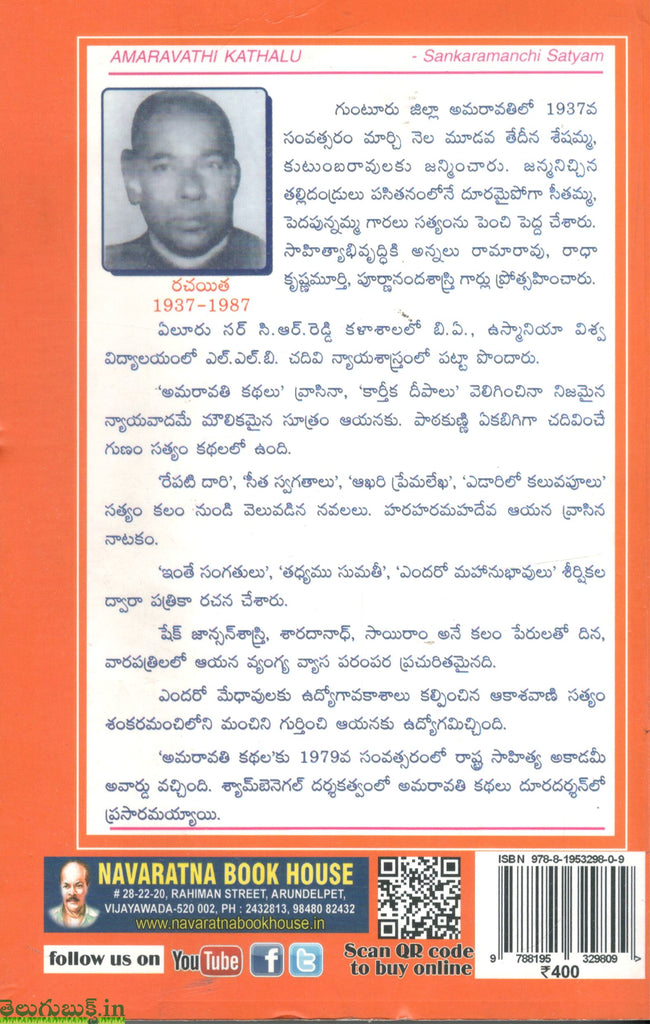 AMARAVATHI KATHALU - Sankaramanchi Satyam
గుంటూరు జిల్లా అమరావతిలో 1937వ
సంవత్సరం మార్చి నెల మూడవ తేదీన శేషమ్మ,
కుటుంబరావులకు జన్మించారు. జన్మనిచ్చిన
తల్లిదండ్రులు పసితనంలోనే దూరమైపోగా సీతమ్మ,
పెదపున్నమ్మ గారలు సత్యంను పెంచి పెద్ద చేశారు.
సాహిత్యాభివృద్ధికి అన్నలు రామారావు, రాధా
కృష్ణమూర్తి, పూర్ణానందశాస్త్రి గార్లు ప్రోత్సహించారు.
రచయిత
1937-1987
ఏలూరు సర్ సి.ఆర్.రెడ్డి కళాశాలలో బి.ఏ., ఉస్మానియా విశ్వ
విద్యాలయంలో ఎల్.ఎల్.బి. చదివి న్యాయశాస్త్రంలో పట్టా పొందారు.
'అమరావతి కథలు' వ్రాసినా, 'కార్తీక దీపాలు' వెలిగించినా నిజమైన
న్యాయవాదమే మౌలికమైన సూత్రం ఆయనకు. పాఠకుణ్ణి ఏకబిగిగా చదివించే
గుణం సత్యం కథలలో ఉంది.
'రేపటి దారి', 'సీత స్వగతాలు', 'ఆఖరి ప్రేమలేఖ', 'ఎడారిలో కలువపూలు'
సత్యం కలం నుండి వెలువడిన నవలలు. హరహరమహదేవ ఆయన వ్రాసిన
నాటకం.
'ఇంతే సంగతులు', 'తథ్యము సుమతీ', 'ఎందరో మహానుభావులు' శీర్షికల
ద్వారా పత్రికా రచన చేశారు.
షేక్ జాన్సన్‌శాస్త్రి, శారదానాథ్, సాయిరాం అనే కలం పేరులతో దిన,
వారపత్రిలలో ఆయన వ్యంగ్య వ్యాస పరంపర ప్రచురితమైనది.
ఎందరో మేధావులకు ఉద్యోగావకాశాలు కల్పించిన ఆకాశవాణి సత్యం
శంకరమంచిలోని మంచిని గుర్తించి ఆయనకు ఉద్యోగమిచ్చింది.
'అమరావతి కథల'కు 1979వ సంవత్సరంలో రాష్ట్ర సాహిత్య అకాడమీ
అవార్డు వచ్చింది. శ్యామ్‌బెనెగల్ దర్శకత్వంలో అమరావతి కథలు దూరదర్శన్‌లో
ప్రసారమయ్యాయి.
NAVARATNA BOOK HOUSE
# 28-22-20, RAHIMAN STREET, ARUNDELPET,
VIJAYAWADA-520 002, PH : 2432813, 98480 82432
www.navaratnabookhouse.in
follow us on YouTube f t
Scan QR code
to buy online
ISBN 978-8-1953298-0-9
9 788195 329809 >
₹400
తెలుగుబుక్స్.in